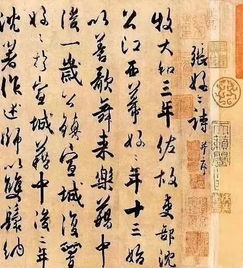 張好々詩并序
牧大和三年佐故吏部沈
公江西幕好々年十三始
以善歌舞來樂籍中
後一歲公鎮宣城復置
好々於宣城籍中後二年
沈著作述師以雙鬟納